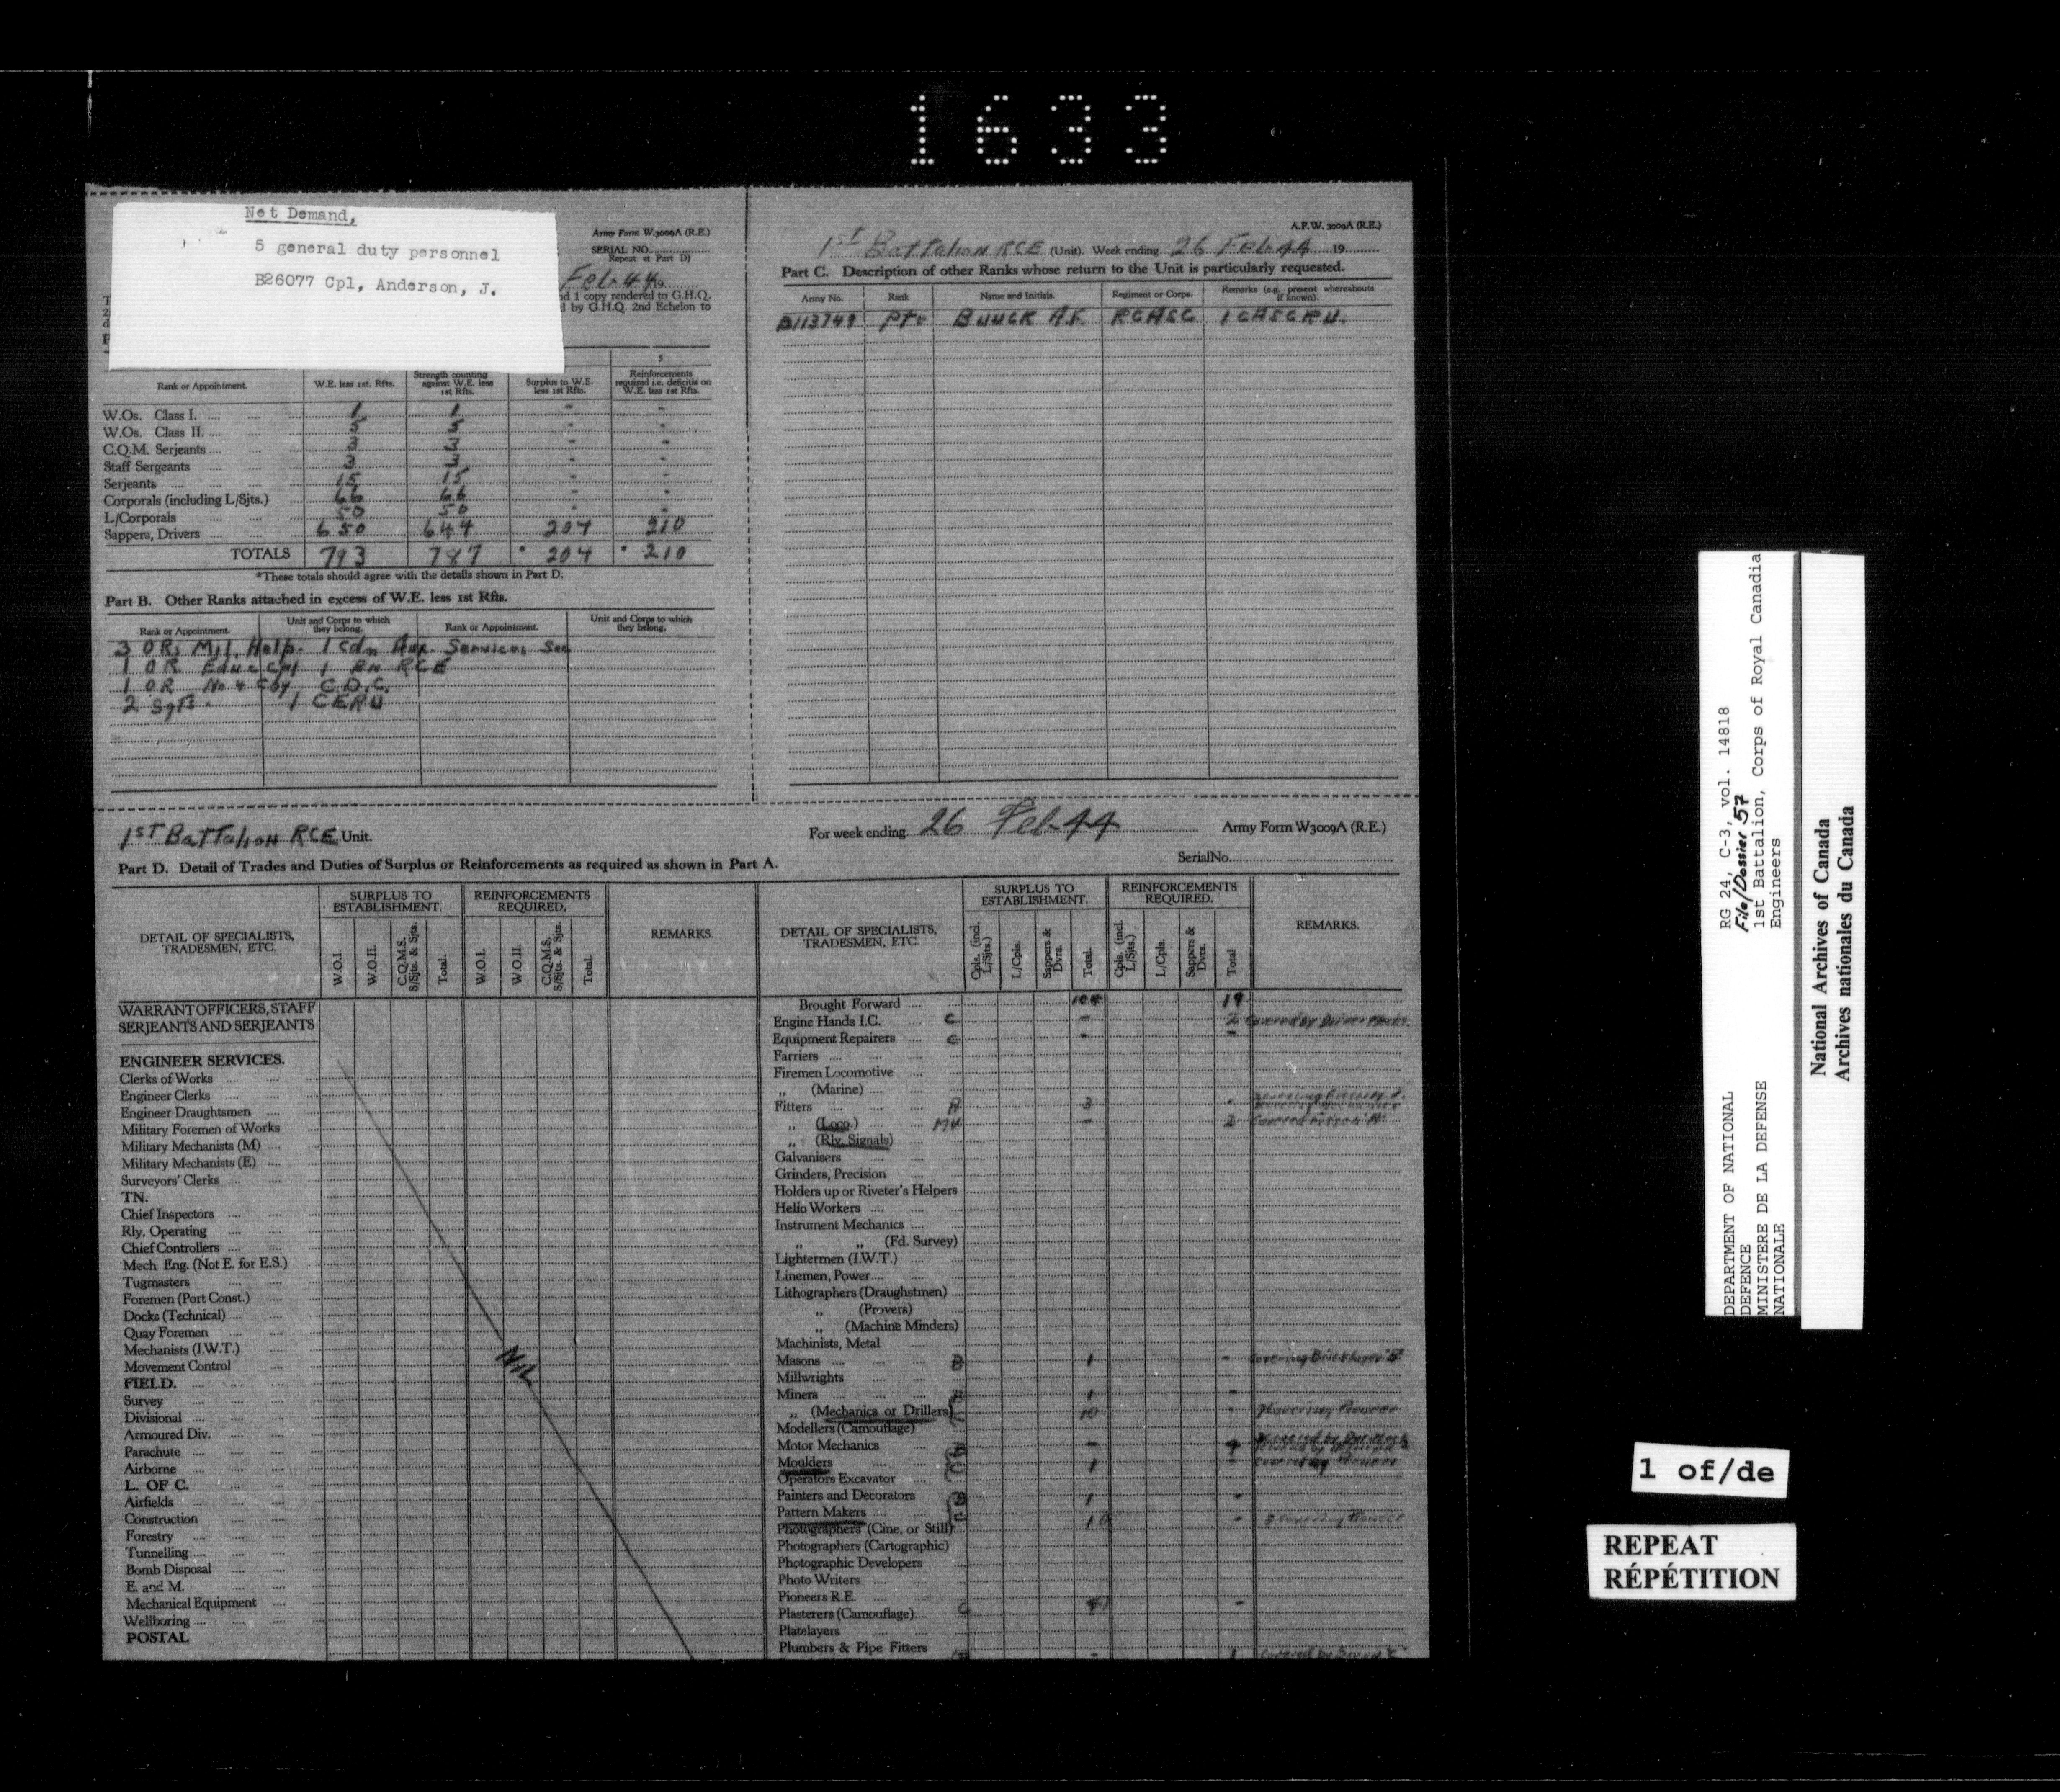 1633
Net Demand,
5 general duty personnel
B26077 Cpl, Anderson, J.
Army Form W.3009A (R.E.)
SERIAL NO.
Repeat at Part D)
Feb. 44 19
nd 1 copy rendered to G.H.Q.
d by G.H.Q. 2nd Echelon to
5
Rank or Appointment. W.E. less 1st. Rfts. Strength counting against W.E. less 1st Rfts. Surplus to W.E. less 1st Rfts. Reinforcements required i.e. deficits on W.E. less 1st Rfts.
W.Os. Class I. 1 1 - -
W.Os. Class II. 5 5 - -
C.Q.M. Serjeants 3 3 - -
Staff Sergeants 3 3 - -
Serjeants 15 15 - -
Corporals (including L/Sjts.) 66 66 - -
L/Corporals 50 50 - -
Sappers, Drivers 650 644 204 210
TOTALS 793 787 * 204 * 210
*These totals should agree with the details shown in Part D.
Part B. Other Ranks attached in excess of W.E. less 1st Rfts.
Rank or Appointment. Unit and Corps to which they belong. Rank or Appointment. Unit and Corps to which they belong.
3 ORs Mil. Help. 1 Cdn Aux. Services Sec
1 OR Educ Cpl 1 Bn RCE
1 OR No 4 Coy C.D.C.
2 Sgts. 1 CERU
A.F.W. 3009A (R.E.)
1st Battalion RCE (Unit). Week ending 26 Feb. 44 19
Part C. Description of other Ranks whose return to the Unit is particularly requested.
Army No. Rank Name and Initials. Regiment or Corps. Remarks (e.g. present whereabouts if known).
B113749 Pte A.F. RCASC 1 CASCRU.
1ST Battalion RCE Unit. For week ending 26 Feb 44 Army Form W3009A (R.E.)
Serial No.
Part D. Detail of Trades and Duties of Surplus or Reinforcements as required as shown in Part A.
DETAIL OF SPECIALISTS, TRADESMEN, ETC. SURPLUS TO ESTABLISHMENT. REINFORCEMENTS REQUIRED. REMARKS.
W.O.I. W.O.II. C.Q.M.S. S/Sjts. & Sjts. Total. W.O.I. W.O.II. C.Q.M.S. S/Sjts. & Sjts. Total.
WARRANT OFFICERS, STAFF
SERJEANTS AND SERJEANTS
ENGINEER SERVICES.
Clerks of Works
Engineer Clerks
Engineer Draughtsmen
Military Foremen of Works
Military Mechanists (M)
Military Mechanists (E)
Surveyors' Clerks
TN.
Chief Inspectors
Rly. Operating
Chief Controllers
Mech Eng. (Not E. for E.S.)
Tugmasters
Foremen (Port Const.)
Docks (Technical)
Quay Foremen
Mechanists (I.W.T.)
Movement Control
NIL
FIELD.
Survey
Divisional
Armoured Div.
Parachute
Airborne
L. OF C.
Airfields
Construction
Forestry
Tunnelling
Bomb Disposal
E. and M.
Mechanical Equipment
Wellboring
POSTAL
DETAIL OF SPECIALISTS, TRADESMEN, ETC. SURPLUS TO ESTABLISHMENT. REINFORCEMENTS REQUIRED. REMARKS.
Cpls. (incl. L/Sjts.) L/Cpls. Sappers & Dvrs. Total. Cpls. (incl. L/Sjts.) L/Cpls. Sappers & Dvrs. Total
Brought Forward 104 19
Engine Hands I.C. C - 2
Equipment Repairers C - -
Farriers
Firemen Locomotive
„ (Marine)
Fitters A 3 -
„ (Loco.) MV - 2
„ (Rly. Signals)
Galvanisers
Grinders, Precision
Holders up or Riveter's Helpers
Helio Workers
Instrument Mechanics
„ „ (Fd. Survey)
Lightermen (I.W.T.)
Linemen, Power
Lithographers (Draughstmen)
„ (Provers)
„ (Machine Minders)
Machinists, Metal
Masons B 1 - covering Bricklayer B
Millwrights
Miners B 1 -
„ (Mechanics or Drillers) C 10 - covering Pioneer
Modellers (Camouflage)
Motor Mechanics B - 4
Moulders C 1 - covering Pioneer
Operators Excavator
Painters and Decorators B 1 -
Pattern Makers C 10 - covering Pioneer
Photographers (Cine, or Still)
Photographers (Cartographic)
Photographic Developers
Photo Writers
Pioneers R.E.
Plasterers (Camouflage) C -
Platelayers
Plumbers & Pipe Fitters - 1
RG 24, C-3, vol. 14818
File/Dossier 57
1st Battalion, Corps of Royal Canadia
Engineers
DEPARTMENT OF NATIONAL
DEFENCE
MINISTERE DE LA DEFENSE
NATIONALE
National Archives of Canada
Archives nationales du Canada
1 of/de
REPEAT
RÉPÉTITION